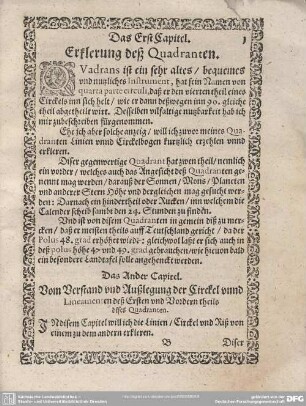 Das Erst Capitel.
3
Erklerung deß Quadranten.
QVadrans ist ein sehr altes / bequemes
vnd nutzliches Instrument, hat sein Namen von
quarta parte circuli, daß er den vierten theil eines
Circkels inn sich helt / wie er dann deßwegen inn 90. gleiche
theil abgetheilt wirt. Desselben vilfaltige nutzbarkeit hab ich
mir zubeschreiben fürgenommen.
Ehe ich aber solche anzeig / will ich zuvor meines Qua-
dranten Linien vnnd Circkelbogen kurtzlich erzehlen vnnd
erkleren.
Diser gegenwertige Quadrant hat zwen theil / nemlich
ein vorder / welches auch das Angesicht deß Quadranten ge-
nennt mag werden / darauß der Sonnen / Mons / Planeten
vnd anderer Stern Höhe vnd dergleichen mag gesucht wer-
den: Darnach ein hindertheil oder Rucken / inn welchem die
Calender scheib sambt den 24. Stunden zu finden.
Vnd ist von disem Quadranten in gemein diß zu mer-
cken / daß er meisten theils auff Teutschland gericht / da der
Polus 48. grad erhöhet wirdt: gleichwol laßt er sich auch in
deß polus höhe 47 vnd 49. grad gebrauchen / wie hievon bald
ein besondere Landtafel solle angehenckt werden.
Das Ander Capitel.
Vom Verstand vnd Außlegung der Circkel vnnd
Lineamenten deß Ersten vnd Vordern theils
dises Quadranten.
IN disem Capitel will ich die Linien / Circkel vnd Riß von
einem zu dem andern erkleren.
B
Diser